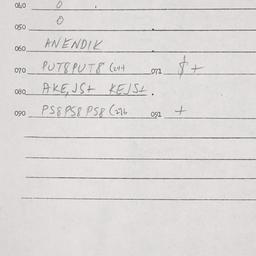 040 0
050 0
060 ANENDIK
070 PUT8PUT8 071 $+
080 AKE,JS+ KEJS+.
090 PS8PS8 PS8 091 +